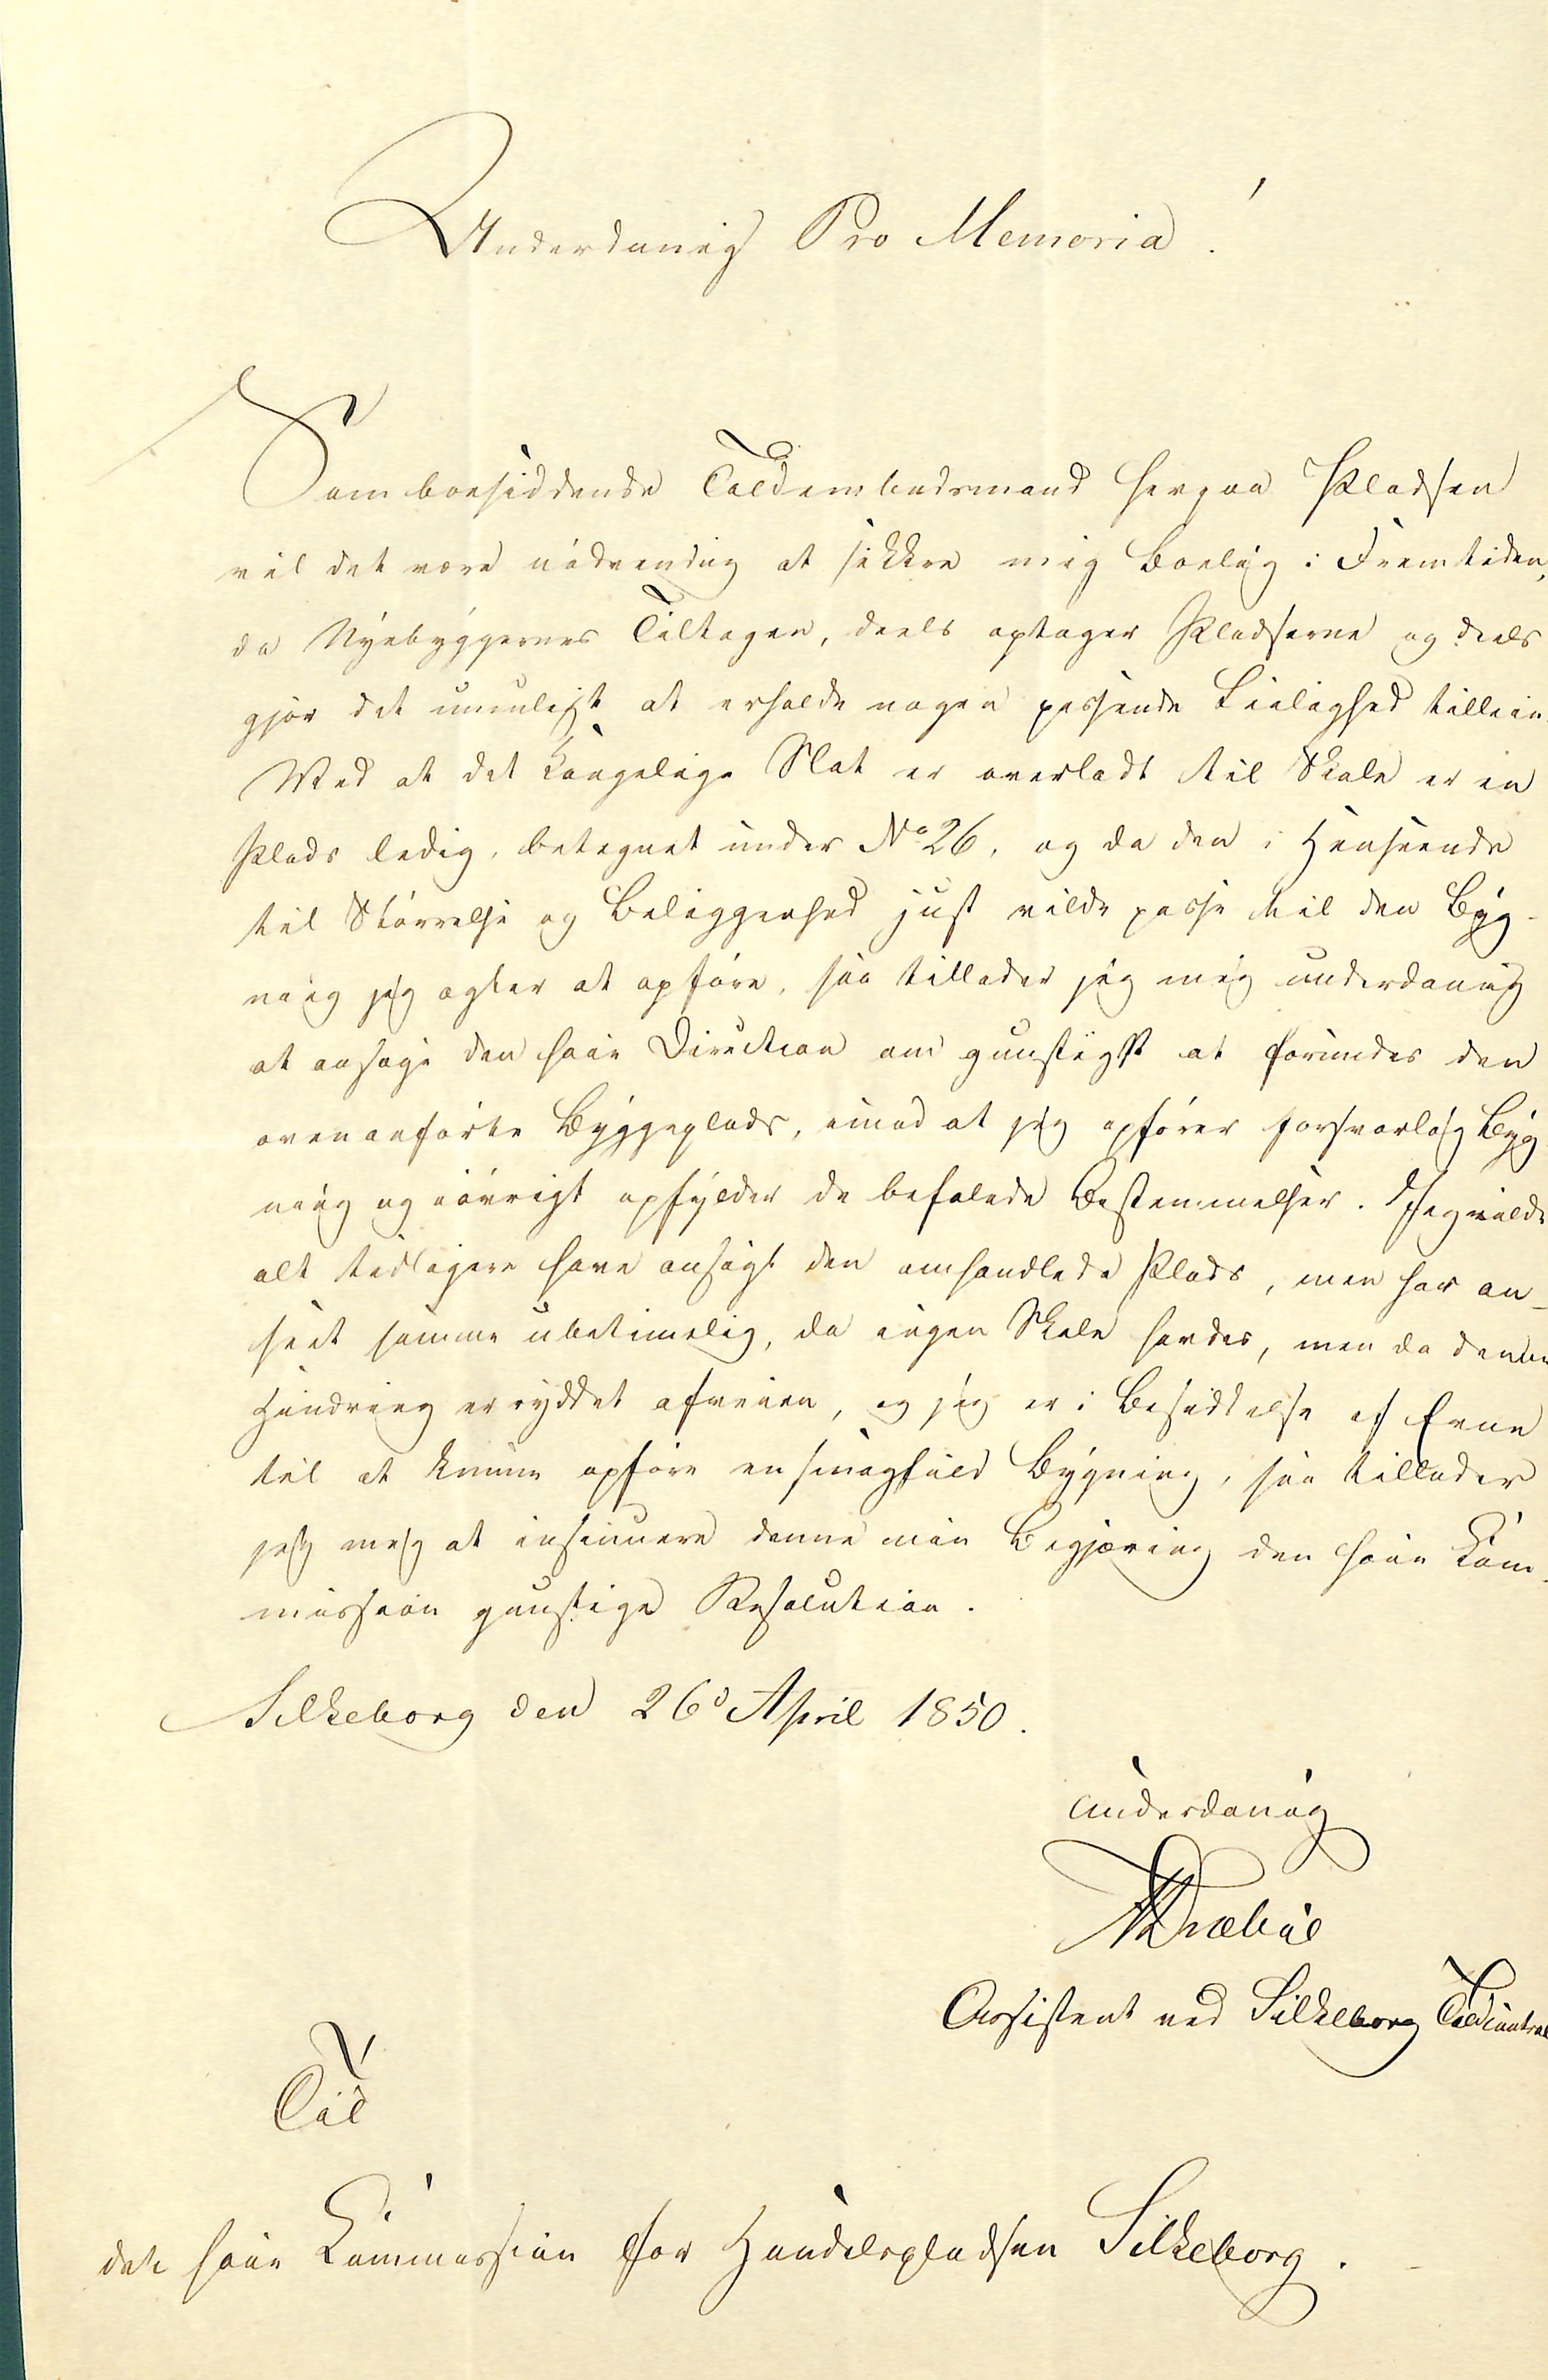 Underdanig Pro Memoria!
Som boesiddende Toldembedsmand herpaa Pladsen
vil det være nödvendig at sikkre mig Bolig i Fremtiden,
da Nyebyggernes Tiltagen, deels optager Pladserne og deels
gjör det umuligt at erholde nogen passende Leilighed tilleie.
Ved at det Kongelige Slot er overladt til Skole er en
Plads ledig, betegnet under No 26, og da den i Henseende
til Störrelse og Beliggenhed just vilde passe til den Byg-
ning jeg agter at opföre, saa tillader jeg mig underdanig
at ansöge den höie Direction om gunstigst at forundes den
ovenanförte Byggeplads, imod at jeg opförer forsvarlig Byg
ning og iövrigt opfylder de befalede Bestemmelser. Jeg vilde
alt tidligere have ansögt den omhandlede Plads, men har an-
seet samme ubetimelig, da ingen Skole havdes, men da denne
Hindring er ryddet afveien, og jeg er i Besiddelse af Evne
til at kunne opföre en smagfuld Bygning, saa tillader
jeg mig at insinuere denne min Begjæring den höie Com-
missions gunstige Resolution.
Silkeborg den 26d April 1850.
Underdanig
Assistent ved Silkeborg Toldcontrol
Til
den höie Commission for Handelspladsen Silkeborg.